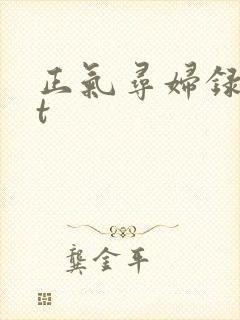 正氣尋婦録
t
龔金平